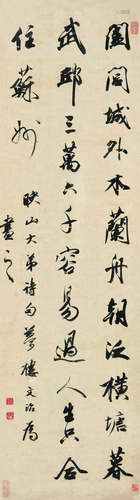 闔閭城外木蘭舟朝泛橫塘暮
武邱三萬六千容易過人生只合
住蘇州
映山大弟詩句夢樓文治為
書之